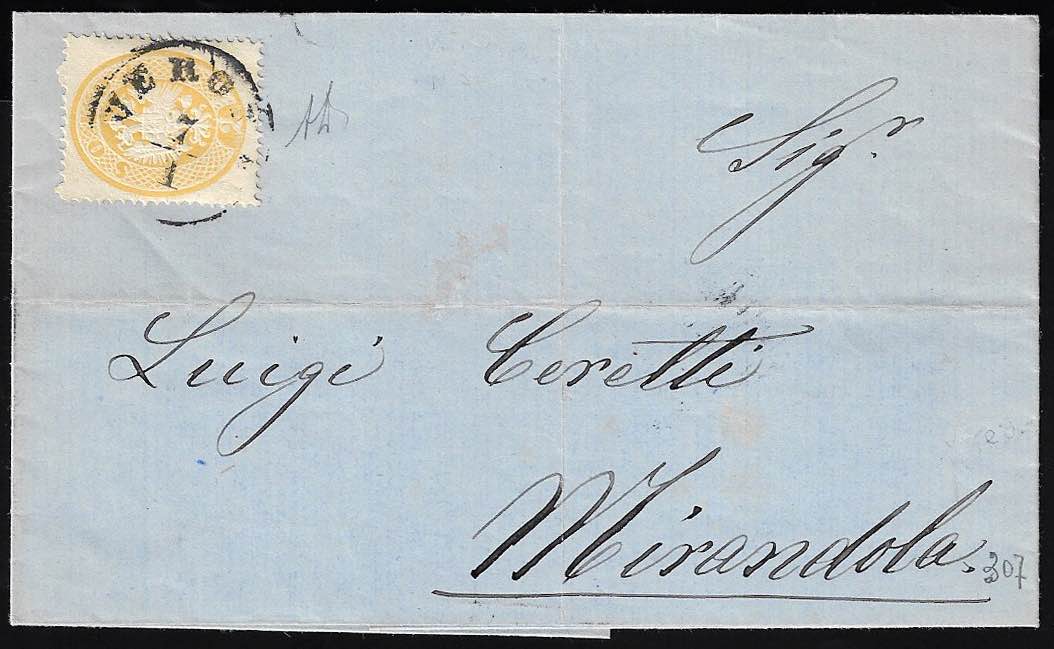 VERO
7
1
Sigr.
Luigi Ceretti
Mirandola.
307